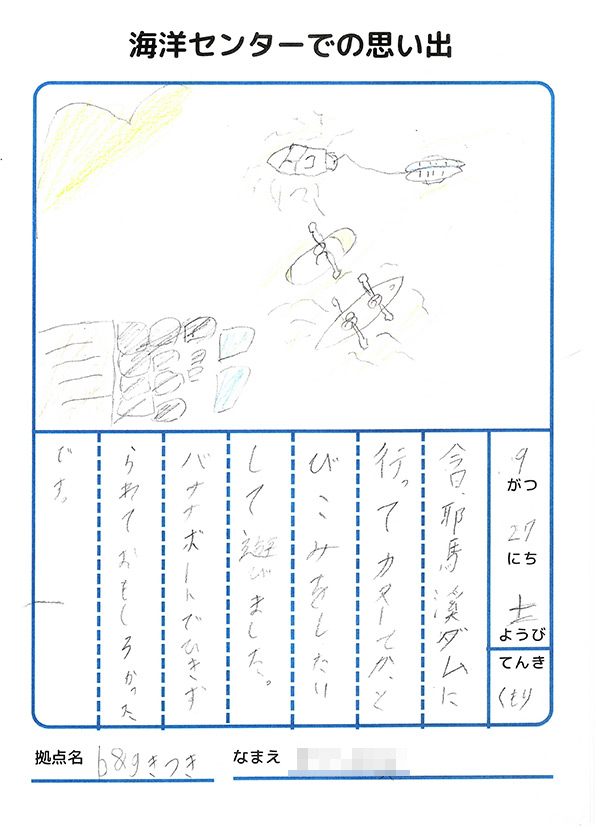 海洋センターでの思い出
9がつ27にち土ようび
てんきくもり
今日、耶馬溪ダムに
行ってカヌーとか、と
びこみをしたり
して遊びました。
バナナボートでひきず
られておもしろかった
です。
拠点名 b&gきつき
なまえ